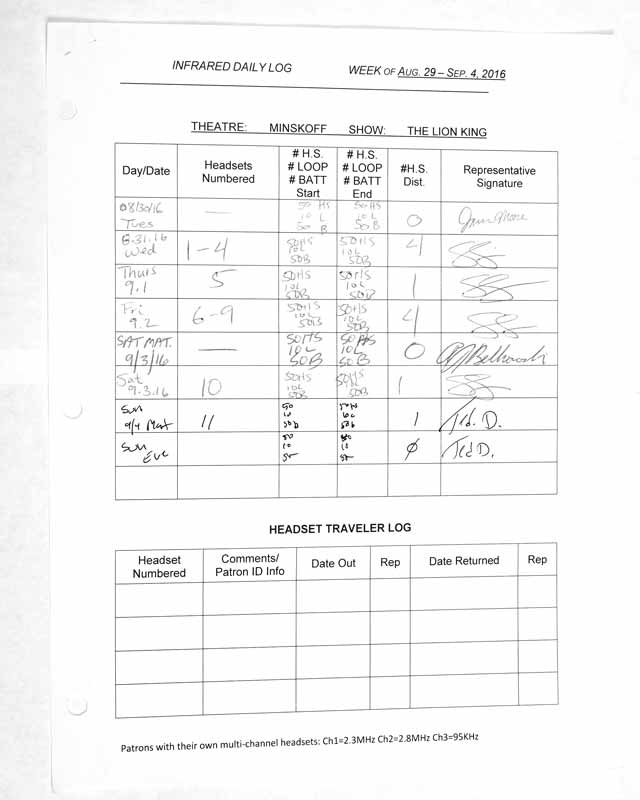 INFRARED DAILY LOG WEEK OF AUG. 29 – SEP. 4, 2016
THEATRE: MINSKOFF SHOW: THE LION KING
Day/Date
Headsets
Numbered
# H.S.
# LOOP
# BATT
Start
# H.S.
# LOOP
# BATT
End
#H.S.
Dist.
Representative
Signature
08/30/16
Tues
—
50 HS
10 L
50 B
50HS
10 L
50 B
0
8.31.16
Wed
1-4
50HS
10L
50B
50HS
10L
50B
4
Thurs
9.1
5
50HS
10L
50B
50HS
10L
50B
1
Fri
9.2
6-9
50HS
10L
50B
50HS
10L
50B
4
SAT MAT.
9/3/16
—
50HS
10L
50B
50HS
10L
50B
0
Sat
9.3.16
10
50HS
10L
50B
50HS
10L
50B
1
Sun
9/4 Mat
11
50
10
50b
50Hs
50b
1
Ted. D.
Sun
Eve
50
10
50
10
ϕ
Ted D.
HEADSET TRAVELER LOG
Headset
Numbered
Comments/
Patron ID Info
Date Out
Rep
Date Returned
Rep
Patrons with their own multi-channel headsets: Ch1=2.3MHz Ch2=2.8MHz Ch3=95KHz